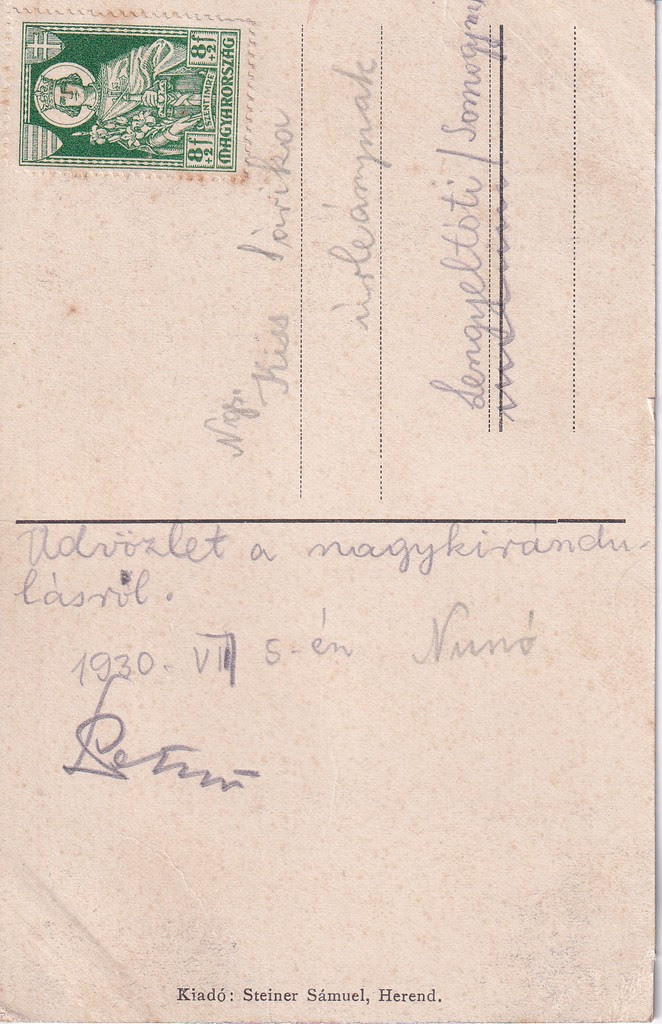 8f
+2
8f
+2
SZENT IMRE
MAGYARORSZÁG
Ngs.
Kiss Sárika
úrleánynak
Lengyeltóti / Somogym
Üdvözlet a nagykirándu-
lásról.
1930. VII 5-én Nunó
Kiadó: Steiner Sámuel, Herend.